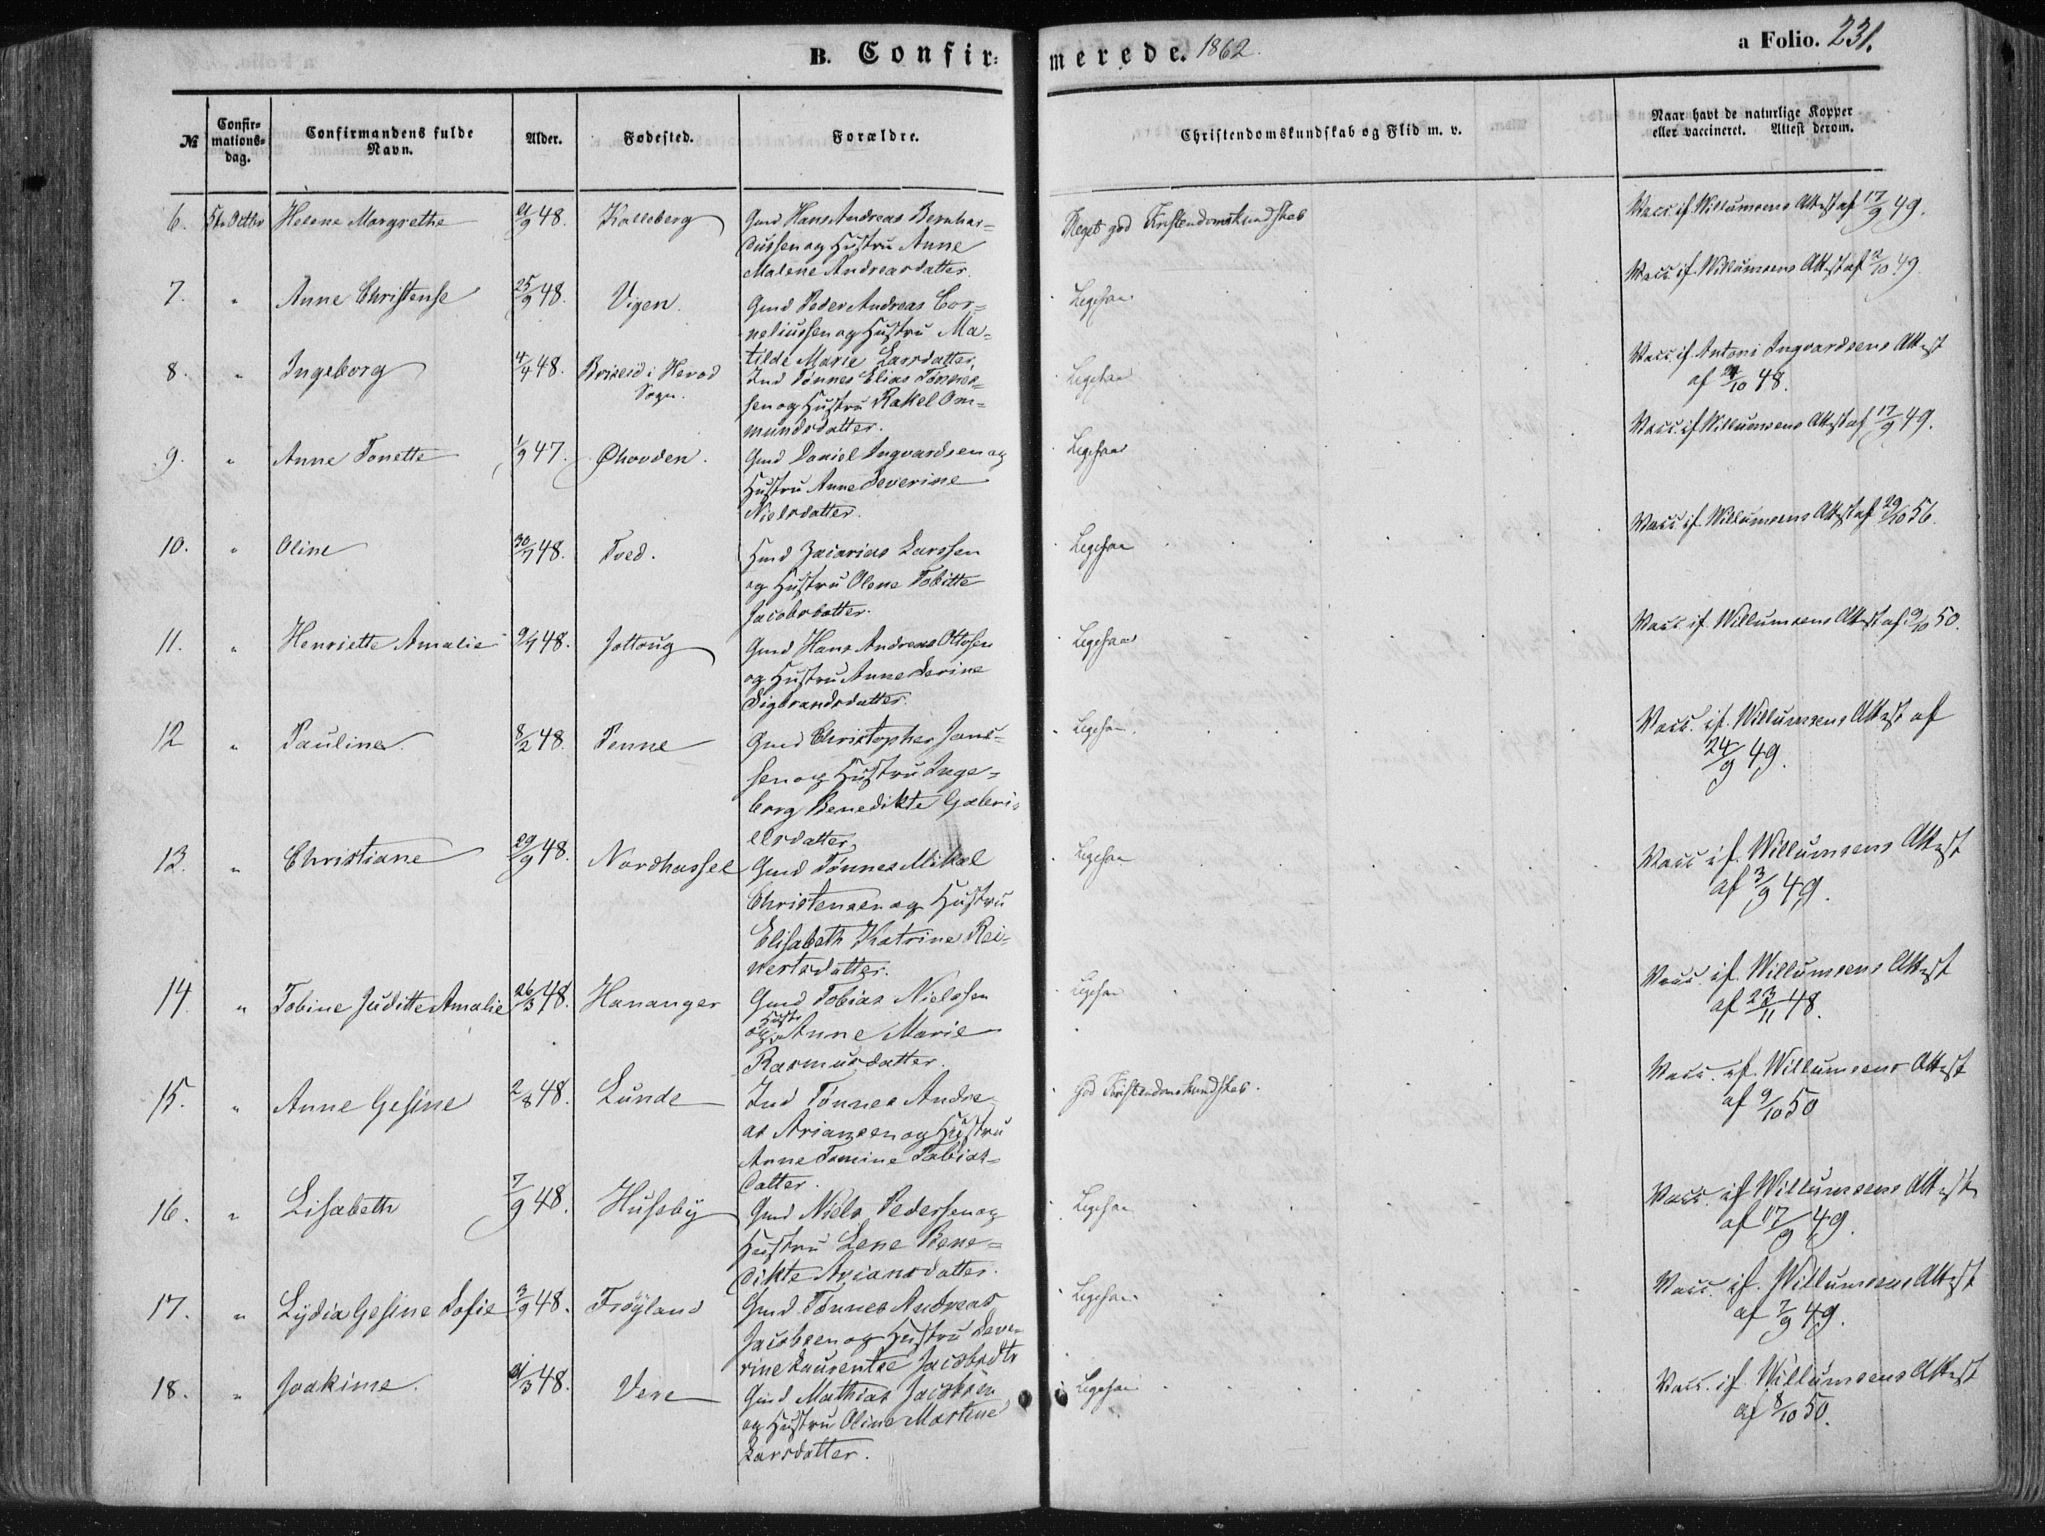 B. Confir=
merede. 1862.
a Folio. 231.
№
Confir-
mations-
dag.
Confirmandens fulde
Navn.
Alder.
Fødested.
Forældre.
Christendomskundskab og Flid m. v.
Naar havt de naturlige Kopper
eller vaccineret. Attest derom.
6. 5te Octbr Helene Margrethe 48. Kalleberg Gmd Hans Andreas Bernhar=
dussen og Hustru Anne
Malene Andreasdatter.
Meget god Kristendomskundskab
Vacc. if. Willumsens Attest af 17/9 49.
7. " Anne Christense 25/9 48. Vigen. Gmd Peder Andreas Cor=
neliussen og Hustru Ma=
tilde Marie Larsdatter.
Ligesaa
Vacc. if. Willumsens Attest af 2/10 49.
8. " Ingeborg 4/4 48. Briseid i Herod
Sogn.
Ind Tønnes Elias Tønnes=
sen og Hustru Rakel Om=
mundsdatter.
Ligesaa
Vacc. if. Antoni Ingvardsens Attest
af 48.
9. " Anne Tonette 1/9 47. Øhovden. Gmd Daniel Ingvardsen og
Hustru Anne Severine
Nielsdatter.
Ligesaa
Vacc. if. Willumsens Attest af 17/9 49.
10. " Oline 30/7 48. Tved. Hmd Zacarias Larssen
og Hustru Olene Tobitte
Jacobsdatter.
Ligesaa
Vacc. if. Willumsens Attest af 29/10 56.
11. " Henriette Amalie 9/7 48. Jottoug Gmd Hans Andreas Ottosen
og Hustru Anne Serine
Sigbrandsdatter.
Ligesaa
Vacc. if. Willumsens Attest af 9/10 50.
12 " Pauline. 8/2 48. Penne Gmd Christopher Jons=
sen og Hustru Inge=
borg Benedikte Gabri=
elsdatter.
Ligesaa.
Vacc. if. Willumsens Attest af
24/9 49.
13. " Christiane 29/9 48. Nordhassel Gmd Tønnes Mikal
Christensen og Hustru
Elisabeth Katrine Rei=
nertsdatter.
Ligesaa
Vacc. if. Willumsens Attest
af 3/9 49.
14. " Tobine Juditte Amalie 26/3 48. Hananger Gmd Tobias Nielssen
og Hustru Anne Marie
Rasmusdatter.
Ligesaa
Vacc. if. Willumsens Attest
af 23/11 48.
15. " Anne Gesine 2/8 48. Lunde Ind Tønnes Andre
as Ariansen og Hustru
Anne Tomine Tobias=
datter.
God Kristendomskundskab.
Vacc. if. Willumsens Attest
af 9/10 50
16. " Lisabeth 7/9 48. Huseby Gmd Niels Pedersen og
Hustru Lene Bene=
dikte Ariansdatter.
Ligesaa
Vacc. if Willumsens Attest
af 17/9 49.
17. " Lydia Gesine Sofie 3/9 48. Frøyland Gmd Tønnes Andreas
Jacobsen og Hustru Seve=
rine Laurentse Jacobsdtr
Ligesaa
Vacc. if. Willumsens Attest
af 7/9 49.
18. " Joakime. 48. Vere Gmd Mathias Jacobsen
og Hustru Oline Martine
Larsdatter.
Ligesaa
Vacc. if. Willumsens Attest
af 8/10 50.